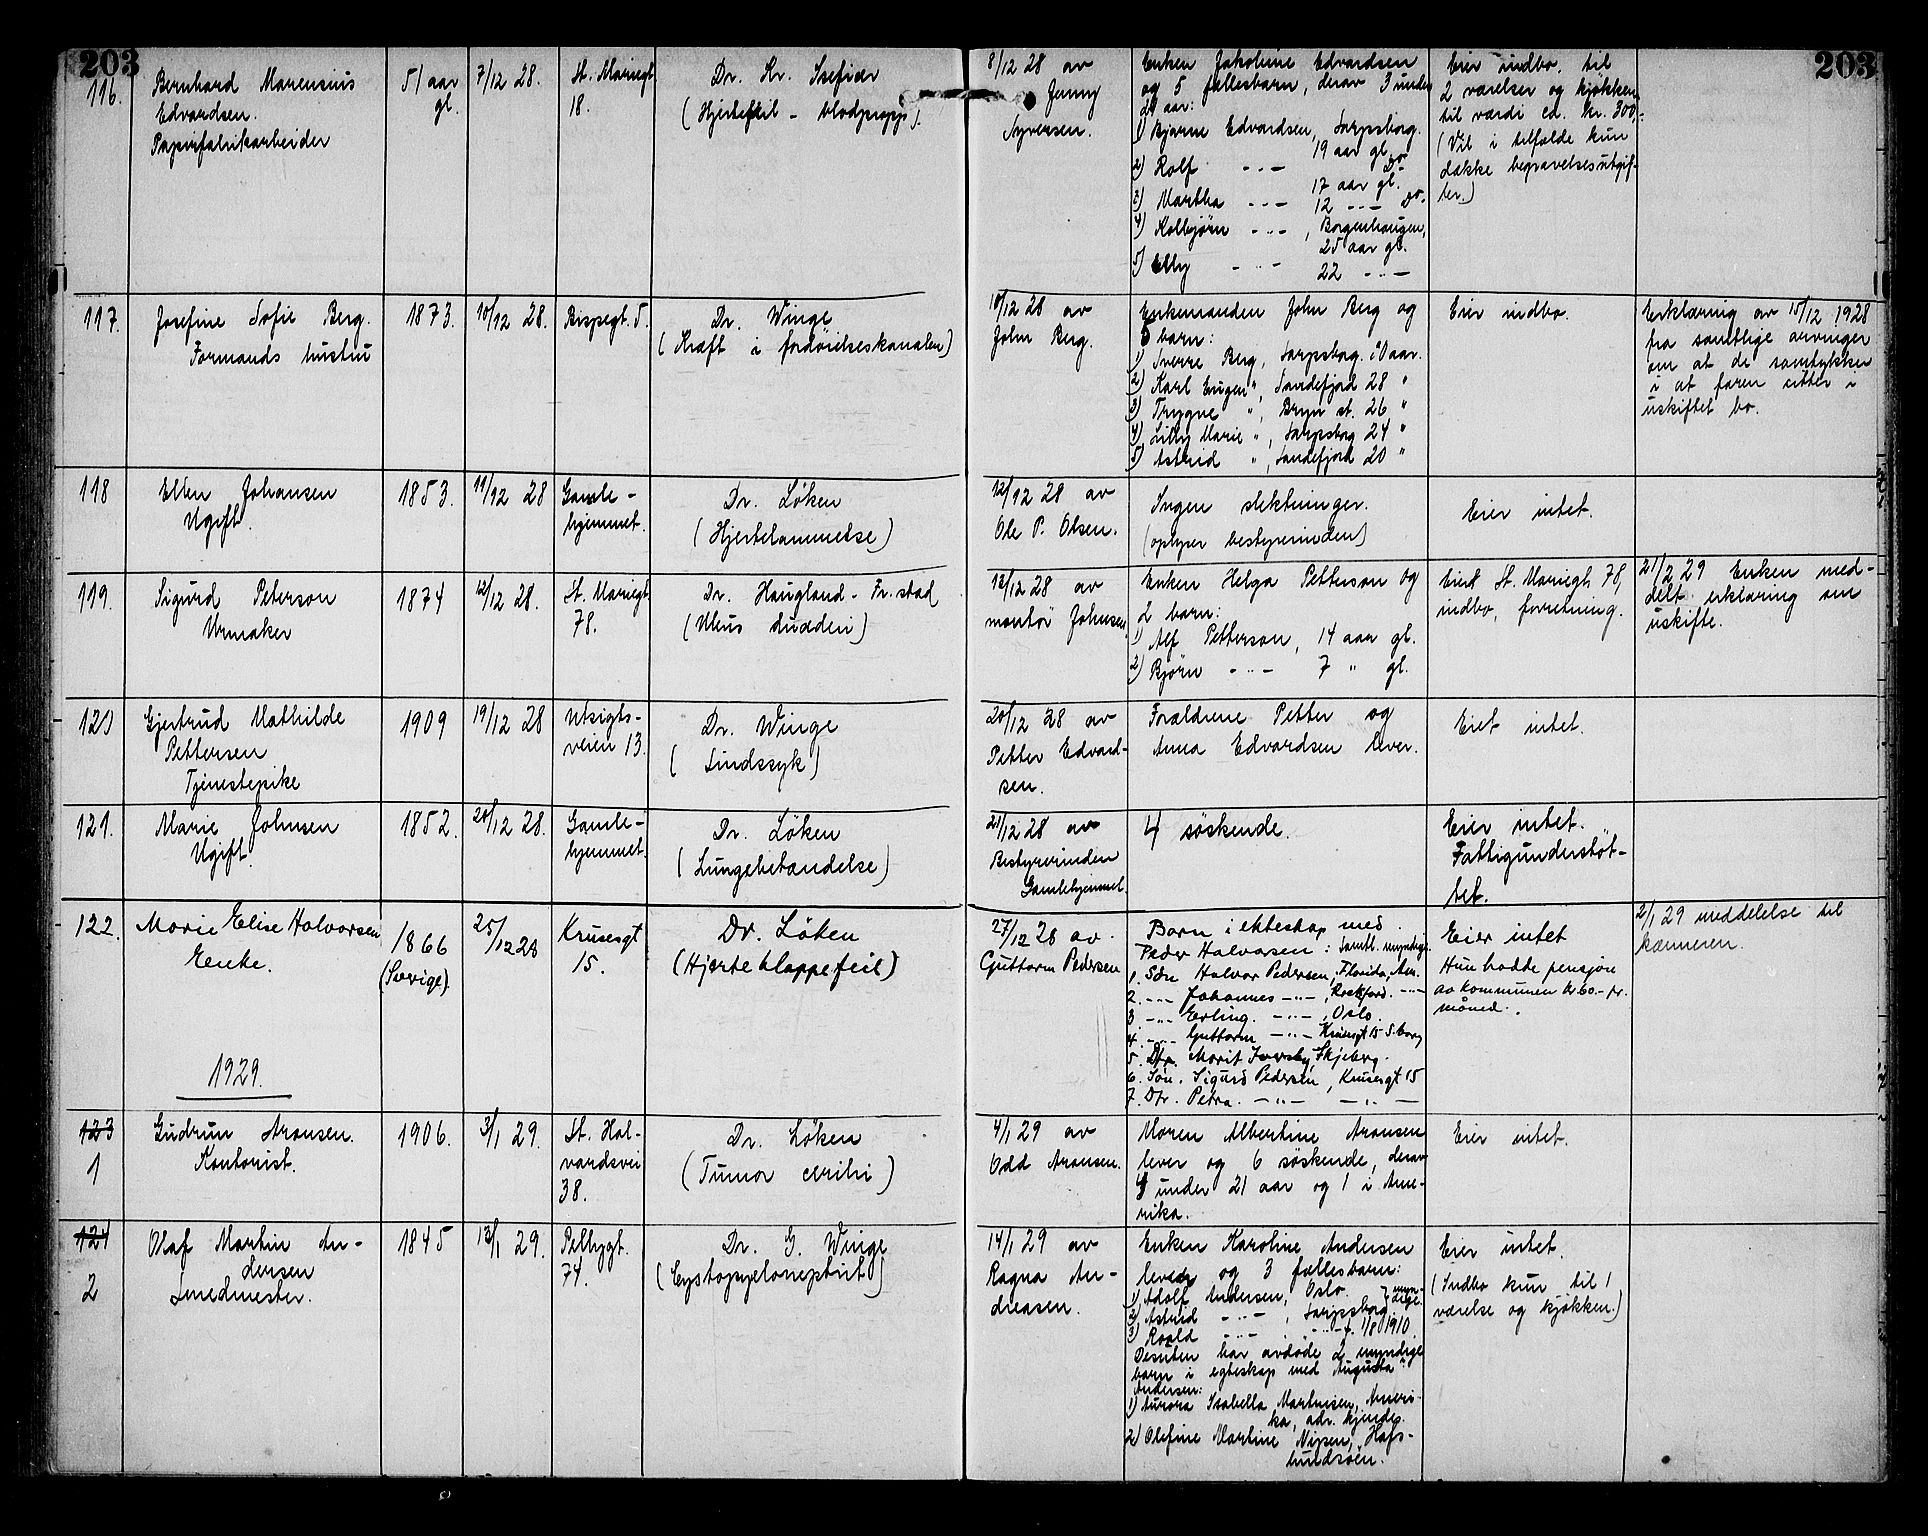 203
203
116.
Bernhard Marensius
Edvardsen.
Papirfabrikarbeider
51 aar
gl.
7/12 28.
St. Mariegt.
18.
Dr. Kr.
(Hjertefeil - blodpropp).
8/12 28 av
Jenny
Syversen.
Enken Jakobine Edvardsen
og 5 fellesbarn, derav 3 under
21 aar:
1) Bjarne Edvardsen, Sarpsborg.
19 aar gl.
2) Rolf -"- Do.
17 aar gl.
3) Martha -"- 12 -"- Do.
4) Kolbjörn -"-, Borgenhaugen,
25 aar gl.
5) Elly -"- 22 -"-
Eier indbo til
2 værelser og kjøkken
til værdi ca. kr. 300,-
(Vil i tilfælde kun
dække begravelsesutgif-
ter.)
117.
Josefine Sofie Berg.
Formands hustru
1873.
10/12 28.
Bispegt. 5.
Dr. Winge
(Kræft i fordöielseskanalen)
10/12 28 av
John Berg.
Enkemanden John Berg og
5 barn:
1) Sverre Berg, Sarpsborg. 30 aar.
2) Karl Eugen ", Sandefjord 28 "
3) Trygve ", Bryn st. 26 "
4) Lilly Marie ", Sarpsborg 24 "
5) Astrid ", Sandefjord 20 "
Eier indbo.
Erklæring av 15/12 1928
fra samtlige arvinger
om at de samtykker
i at faren sitter i
uskiftet bo.
118
Ellen Johansen
Ugift.
1853.
11/12 28
Gamle-
hjemmet.
Dr. Löken
(Hjertelammelse)
12/12 28 av
Ole P. Olsen.
Ingen slektninger.
(oplyser bestyrerinden)
Eier intet.
119.
Sigurd Peterson
Urmaker
1874
12/12 28.
St. Mariegt.
78.
Dr. Haugland - Fr.stad
(Ulcus duodeni)
12/12 28 av
montör Johnsen.
Enken Helga Petterson og
2 barn:
1) Alf Petterson, 14 aar gl.
2) Björn -"- 7 " gl.
Eiet St. Mariegt. 78,
indbo, forretning.
21/2 29 Enken med-
delt erklæring om
uskifte.
120
Gjertrud Mathilde
Pettersen
Tjenestepike
1909
19/12 28
Utsigts-
veien 13.
Dr. Winge
(Sindssyk)
20/12 28 av
Petter Edvard-
sen.
Forældrene Petter og
Anna Edvardsen lever.
Eiet intet.
121.
Marie Johnsen
Ugift.
1852.
20/12 28.
Gamle-
hjemmet.
Dr. Löken
(Lungebetændelse)
21/12 28 av
Bestyrerinden
Gamlehjemmet.
4 söskende.
Eier intet.
Fattigunderstöt-
tet.
122.
Marie Elise Halvorsen
Enke.
1866
(Sverige).
25/12 28
Krusesgt
15.
Dr. Löken
(Hjerteklappefeil)
27/12 28 av.
Guttorm Pedersen
Barn i ekteskap med
Peder Halvorsen: Samtl. myndige
1. Sön Halvor Pedersen, Florida, Am.
2. -"- Johannes -"-, Rockford. -"-
3 -"- Erling. -"-, Oslo.
4. -"- Guttorm -"- Krusesgt 15 S.borg
5. Dtr. Marit Skjeberg.
6. Sön. Sigurd Pedersen, Krusesgt 15
7. Dtr. Petra. -"- -"-
Eier intet
Hun hadde pensjon
av kommunen kr 60.- pr.
måned.
2/1 29 meddelelse til
kæmneren.
1929.
123
1
Gudrun Aronsen.
Kontorist.
1906.
3/1 29.
St. Hal-
vardsvei
38.
Dr. Löken
(Tumor cerebri)
4/1 29 av
Odd Aronsen.
Moren Albertine Aronsen
lever og 6 söskende, derav
4 under 21 aar og 1 i Ame-
rika.
Eier intet.
124
2
Olaf Martin An-
dersen
Smedmester.
1845
13/1 29.
Pellygt.
74.
Dr. G. Winge
(Cystopyelonephrit)
14/1 29 av
Ragna An-
dreasen.
Enken Karoline Andersen
lever og 3 fællesbarn:
1) Adolf Andersen, Oslo. } myn-
dige.
2) Astrid -"-, Sarpsborg
3) Roald -"- -"- f. 1/8 1910.
Desuten har avdöde 2 myndige
barn i egteskap med Augusta
Andersen:
1) Aurora Isabella Martinsen, Ameri-
ka, adr. kjendes.
2) Olefine Martine Nipen, Hafs-
lundsöen.
Eier intet.
(Indbo kun til 1
værelse og kjökken.)